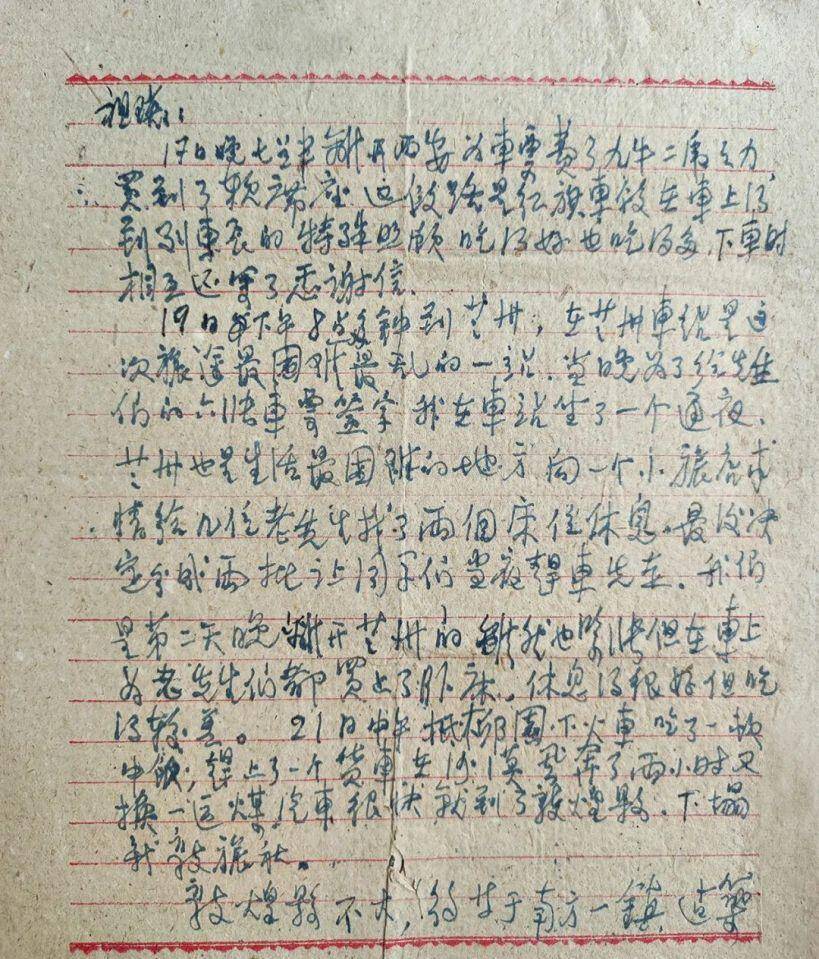 祖琇:
17日晚七点半離开西安为車票費了九牛二虎之力,
買到了软席座.这段路是红旗車段在車上得
到列車長的特殊照顾 吃得好也吃得多.下車时
相互还写了感谢信.
19日下午8点多钟到兰州,在兰州車站是这
次旅途最困难最乱的一站.当晚为了给先生
们的六张車票签字我在車站坐了一个通夜.
兰州也是生活最困难的地方向一个小旅店求
情给几位老先生找了两個床位休息.最后决
定分成两批让同学们当夜趕車先走.我们
是第二天晚離开兰州的 雖然也紧张但在車上
为老先生们都買上了卧床,休息得很好但吃
得較差。21日中午抵柳園.下火車吃了一顿
中飯,趕上了一个货車在沙漠里奔了两小时又
換一运煤汽車很快就到了敦煌縣.下榻
敦旅社.
敦煌縣不大,约等于南方一鎮 造築